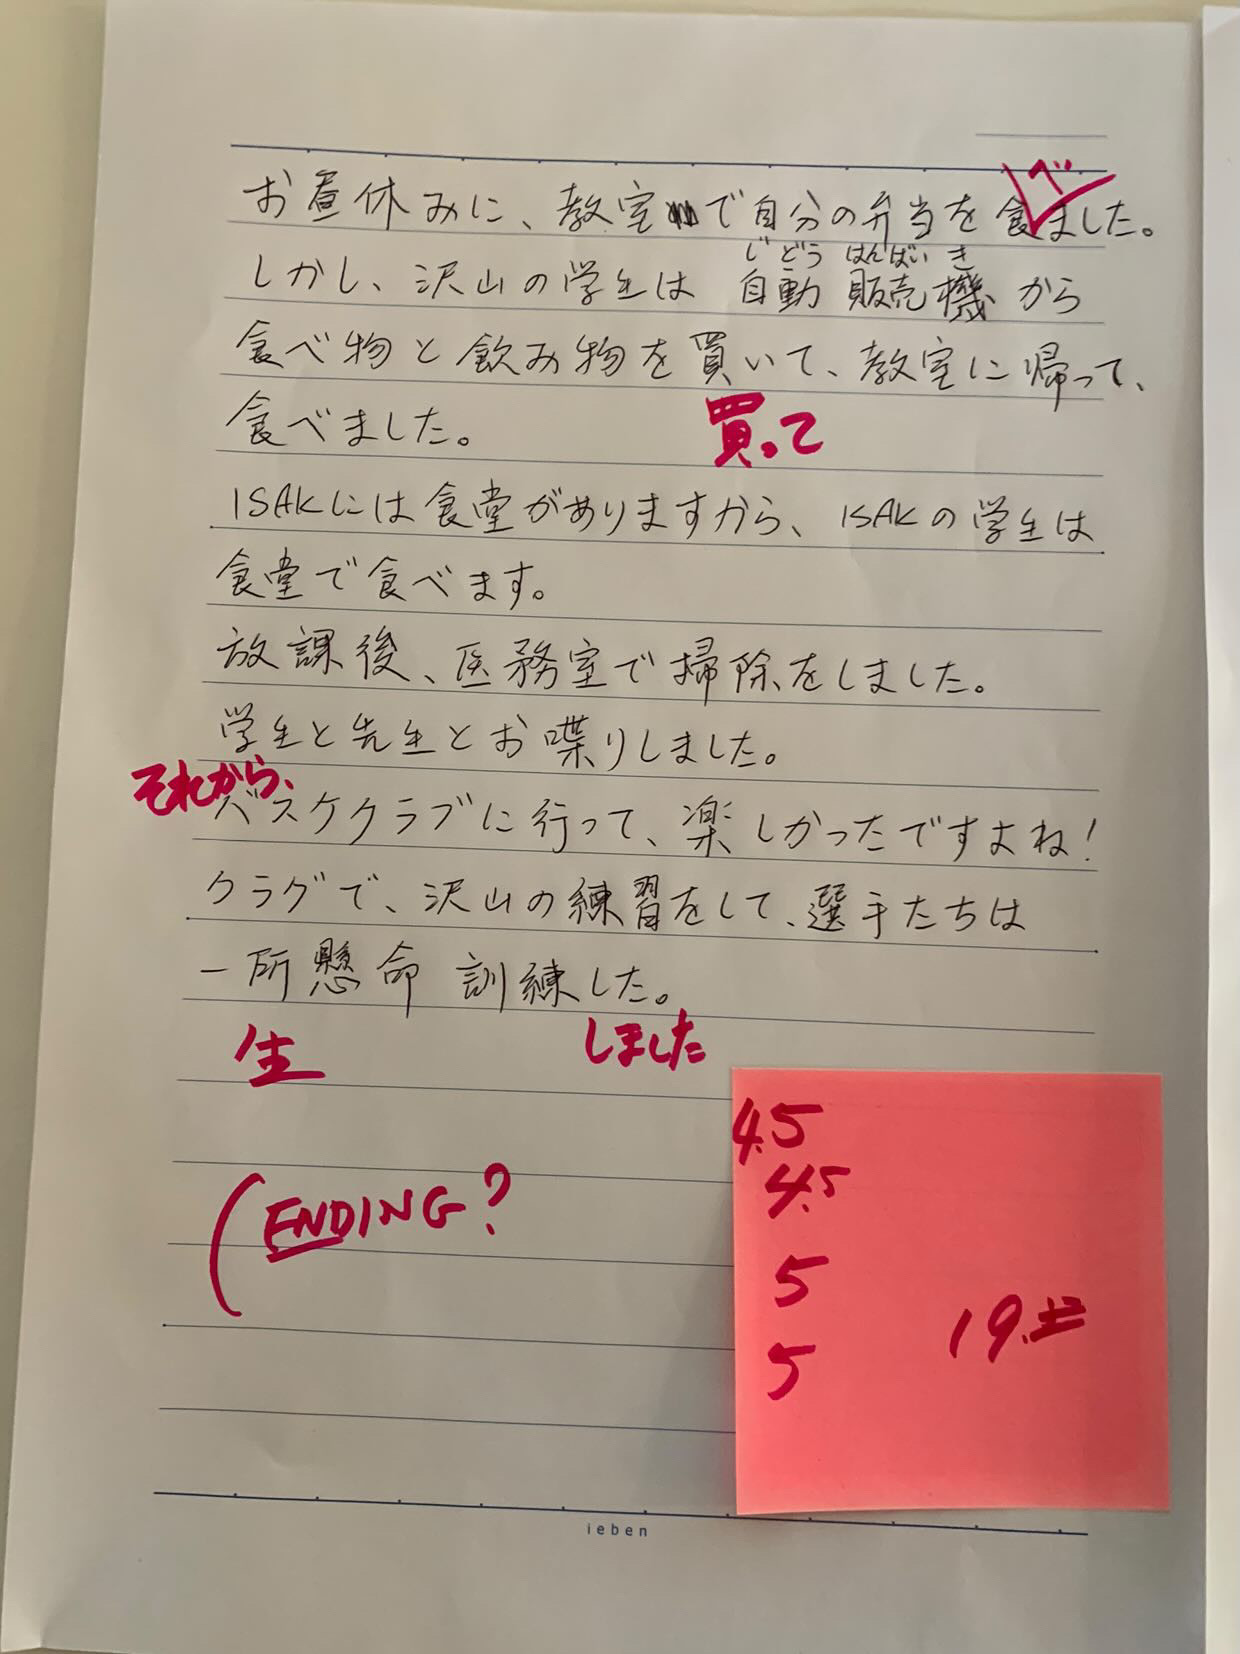 べ
お昼休みに、教室で自分の弁当を食ました。
じどう はんばいき
しかし、沢山の学生は 自動 販売機 から
食べ物と飲み物を買いて、教室に帰って、
食べました。
買って
ISAKには食堂がありますから、ISAKの学生は
食堂で食べます。
放課後、医務室で掃除をしました。
学生と先生とお喋りしました。
それから、
バスケクラブに行って、楽しかったですよね!
クラグで、沢山の練習をして、選手たちは
一所懸命 訓練した。
生 しました
(ENDING?
4.5
4.5
5
19.±
5
ieben